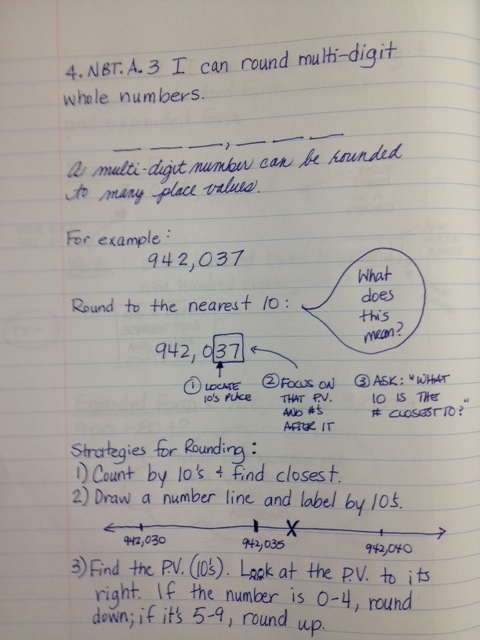 4.NBT.A.3 I can round multi-digit
whole numbers.
_ _ _ , _ _ _
A multi-digit number can be rounded
to many place values.
For example:
942,037
Round to the nearest 10:
What
does
this
mean?
942,037
① LOCATE
10'S PLACE
② FOCUS ON
THAT P.V.
AND #'S
AFTER IT
③ ASK: "WHAT
10 IS THE
# CLOSEST TO?"
Strategies for Rounding:
1) Count by 10's & find closest.
2) Draw a number line and label by 10's.
X
942,030 942,035 942,040
3) Find the P.V. (10's). Look at the P.V. to its
right. If the number is 0-4, round
down; if it's 5-9, round up.